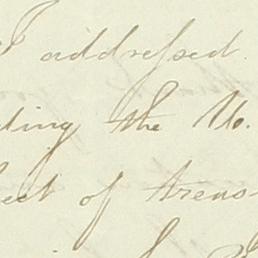 I addressed
ding the U.
ect of treas-